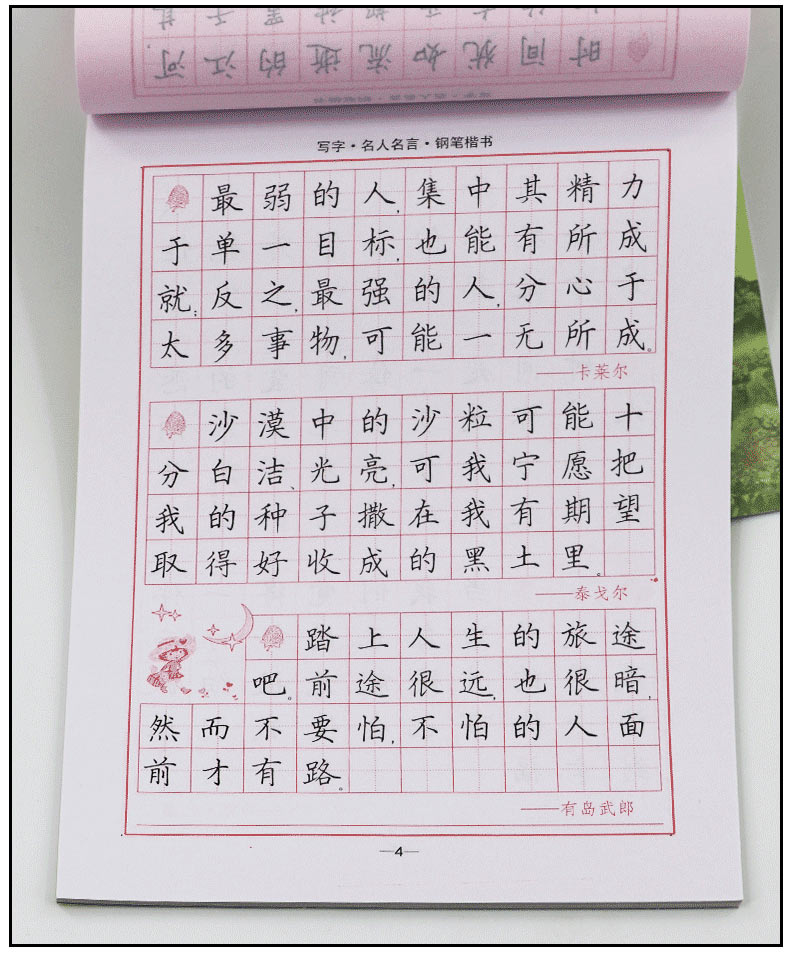 河江的逝流如犹间时
写字·名人名言·钢笔楷书
最弱的人,集中其精力
于单一目标,也能有所成
就;反之,最强的人,分心于
太多事物,可能一无所成。
——卡莱尔
沙漠中的沙粒可能十
分白洁、光亮,可我宁愿把
我的种子撒在我有期望
取得好收成的黑土里。
——泰戈尔
踏上人生的旅途
吧。前途很远,也很暗,
然而不要怕,不怕的人面
前才有路。
——有岛武郎
—4—